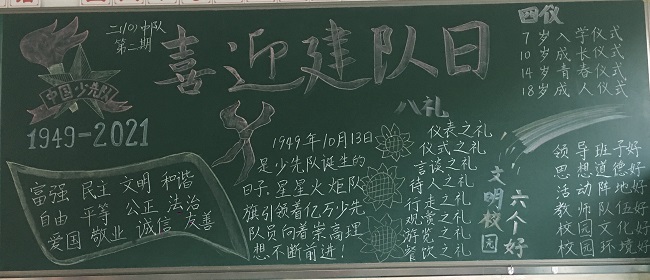 二(10)中队
第二期
喜迎建队日
中国少先队
1949-2021
富强 民主 文明 和谐
自由 平等 公正 法治
爱国 敬业 诚信 友善
1949年10月13日
是少先队诞生的
日子，星星火炬队
旗引领着亿万少先
队员向着崇高理
想不断前进！
八礼
仪表之礼
仪式之礼
言谈之礼
待人之礼
行走之礼
观赏之礼
游览之礼
餐饮之礼
四仪
7岁入学仪式
10岁成长仪式
14岁青春仪式
18岁成人仪式
文明校园
六个好
领导班子好
思想道德好
活动阵地好
教师队伍好
校园文化好
校园环境好